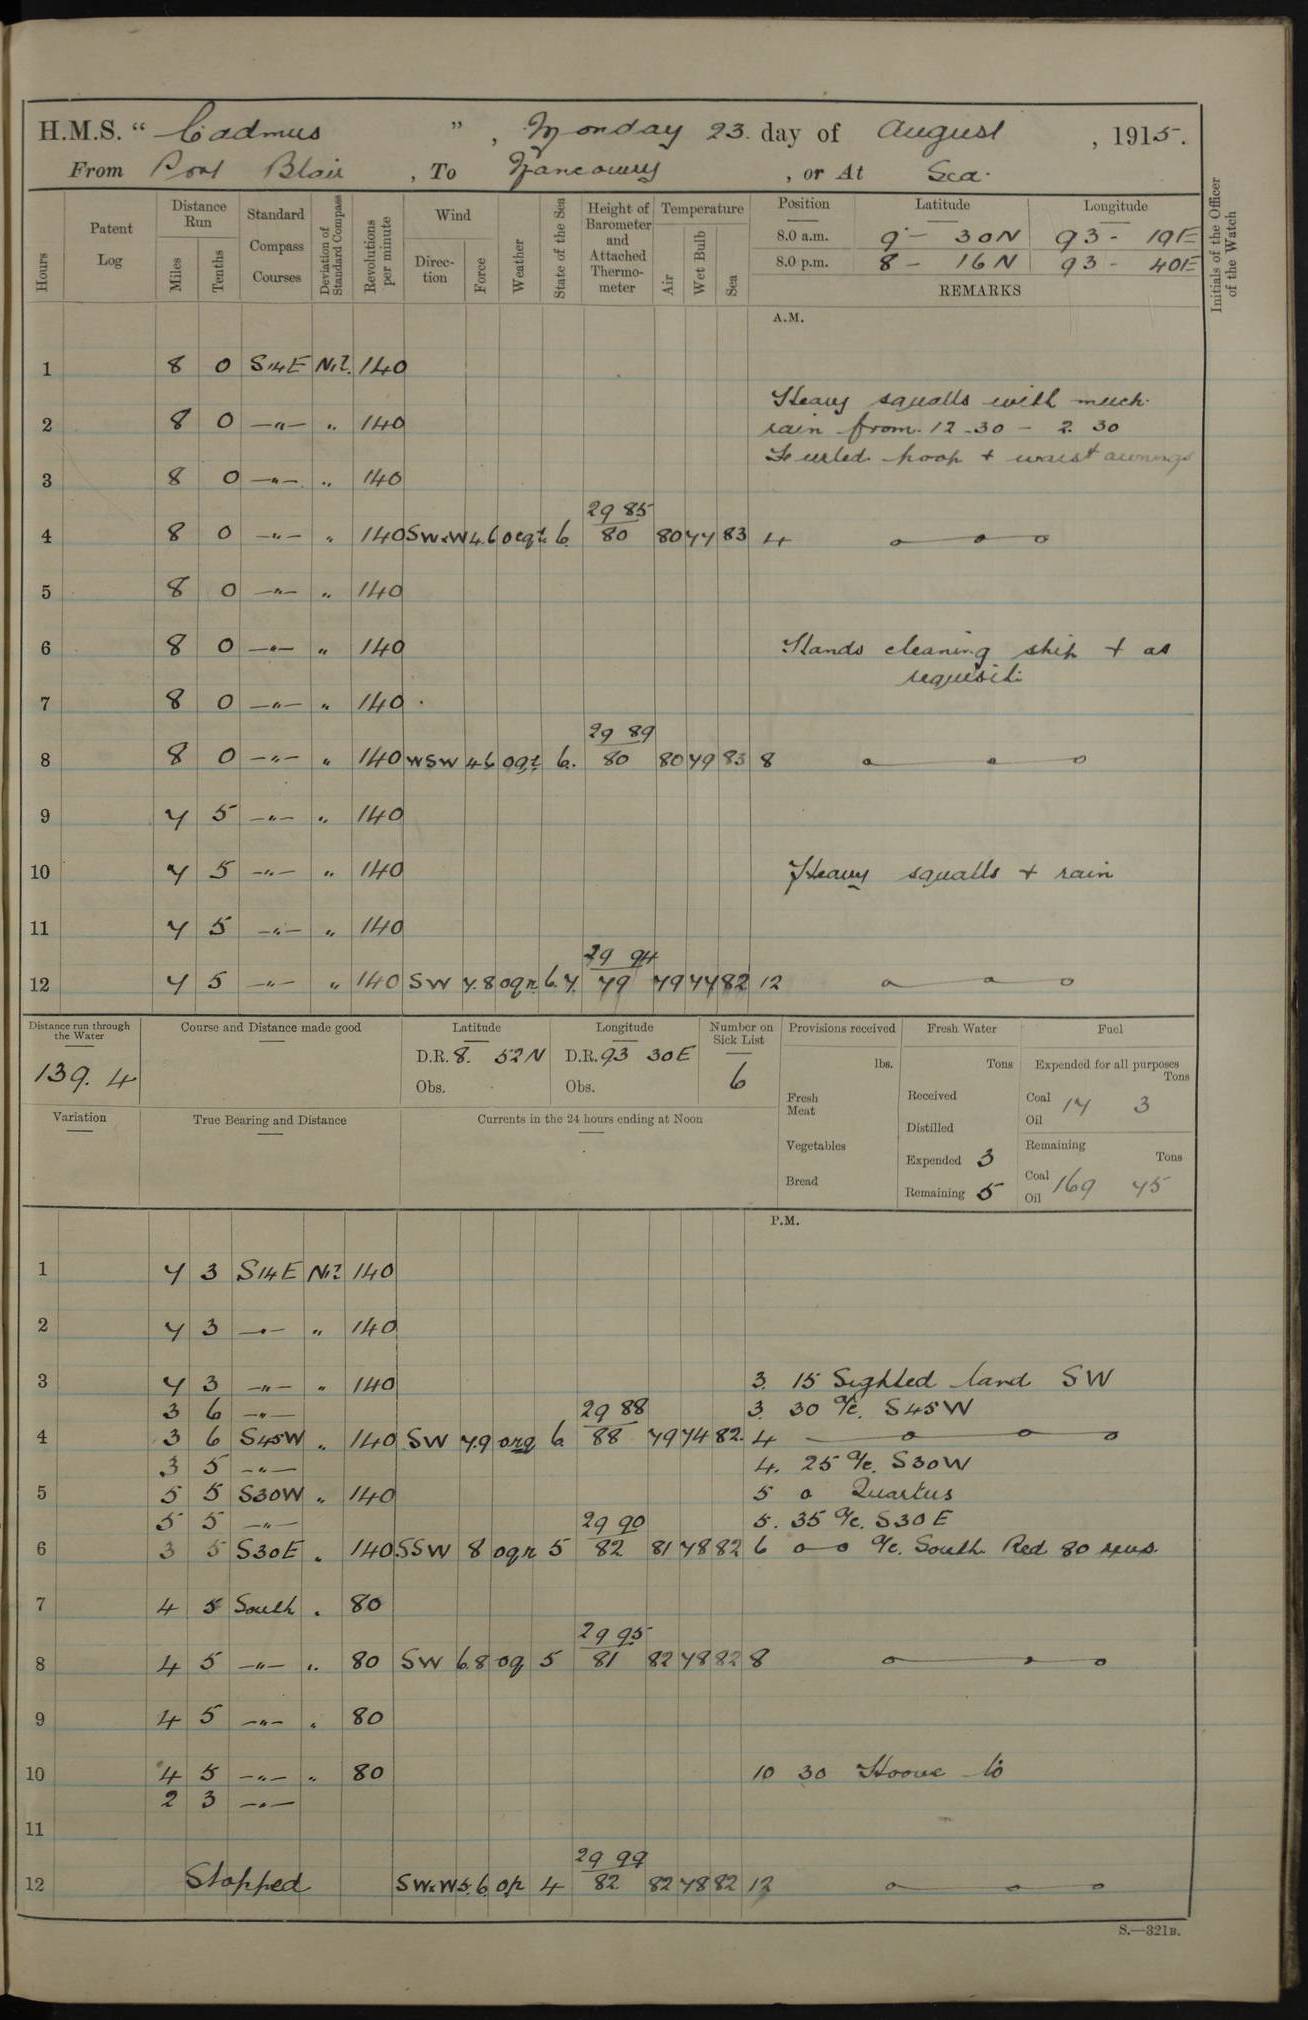 H.M.S. " Cadmus " , Monday 23. day of August , 1915.
From Port Blair , To Nancowry , or At Sea.
Hours
Patent Log
Distance Run
Miles
Tenths
Standard Compass Courses
Deviation of Standard Compass
Revolutions per minute
Wind
Direction
Force
Weather
State of the Sea
Height of Barometer and Attached Thermometer
Temperature
Air
Wet Bulb
Sea
Position Latitude Longitude
8.0 a.m. 9 - 30N 93 - 19E
8.0 p.m. 8 - 16N 93 - 40E
REMARKS
Initials of the Officer of the Watch
A.M.
1 8 0 S14E Nil. 140
Heavy squalls with much
2 8 0 —"— " 140 rain from 12-30 - 2. 30
Furled poop + waist awnings
3 8 0 —"— " 140
29 85
4 8 0 —"— " 140 SWxW 4.6 ocqt 6. 80 80 77 83 4
5 8 0 —"— " 140
6 8 0 —"— " 140 Hands cleaning ship + as
requisite
7 8 0 —"— " 140
29 89
8 8 0 —"— " 140 WSW 4.6 oqt 6. 80 80 79 83 8
9 7 5 —"— " 140
10 7 5 —"— " 140 Heavy squalls + rain
11 7 5 —"— " 140
29 94
12 7 5 —"— " 140 SW 7.8 oqr 6.7. 79 79 77 82 12
Distance run through the Water
139. 4
Course and Distance made good
Latitude
D.R. 8. 52N
Obs.
Longitude
D.R. 93 30E
Obs.
Number on Sick List
6
Provisions received
lbs.
Fresh Meat
Vegetables
Bread
Fresh Water
Tons
Received
Distilled
Expended 3
Remaining 5
Fuel
Expended for all purposes
Tons
Coal 17 3
Oil
Remaining
Tons
Coal 169 75
Oil
Variation
True Bearing and Distance
Currents in the 24 hours ending at Noon
P.M.
1 7 3 S14E Nil 140
2 7 3 —"— " 140
3 7 3 —"— " 140 3. 15 Sighted land SW
3 6 —"— 29 88 3. 30 a/c. S45W
4 3 6 S45W " 140 SW 7.9 orq 6. 88 79 74 82. 4
3 5 —"— 4. 25 a/c. S30W
5 5 5 S30W " 140 5 o Quartus
5 5 —"— 29 90 5. 35 a/c. S30E
6 3 5 S30E " 140 SSW 8 oqr 5 82 81 78 82 6 o—o a/c. South Red 80 revs
7 4 5 South " 80
29 95
8 4 5 —"— " 80 SW 6.8 oq 5 81 82 78 82 8
9 4 5 —"— " 80
10 4 5 —"— " 80 10 30 Hoove to
2 3 —"—
11
29 99
12 Stopped SWxW 5.6 op 4 82 82 78 82 12
S.—321B.